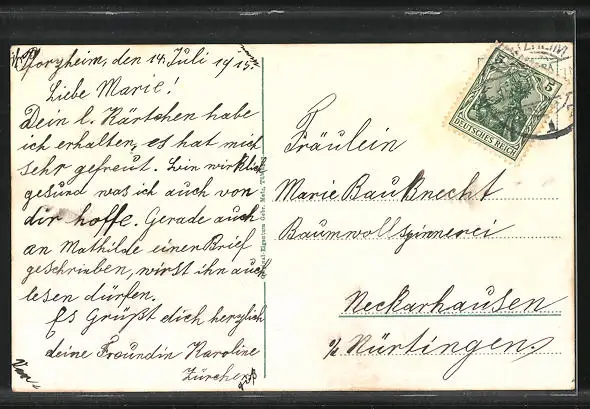 Pforzheim, den 14. Juli 1915.
Liebe Marie!
Dein l. Kärtchen habe
ich erhalten, es hat mich
sehr gefreut. bin wirklich
gesund was ich auch von
dir hoffe. Gerade auch
an Mathilde einen Brief
geschrieben, wirst ihn auch
lesen dürfen.
Es Grüßt dich herzlich
deine Freundin Karoline
Zürcher
Gebr. Metz,
5 5
DEUTSCHES REICH
Fräulein
Marie Bauknecht
Baumwollspinnerei
Neckarhausen
Nürtingen